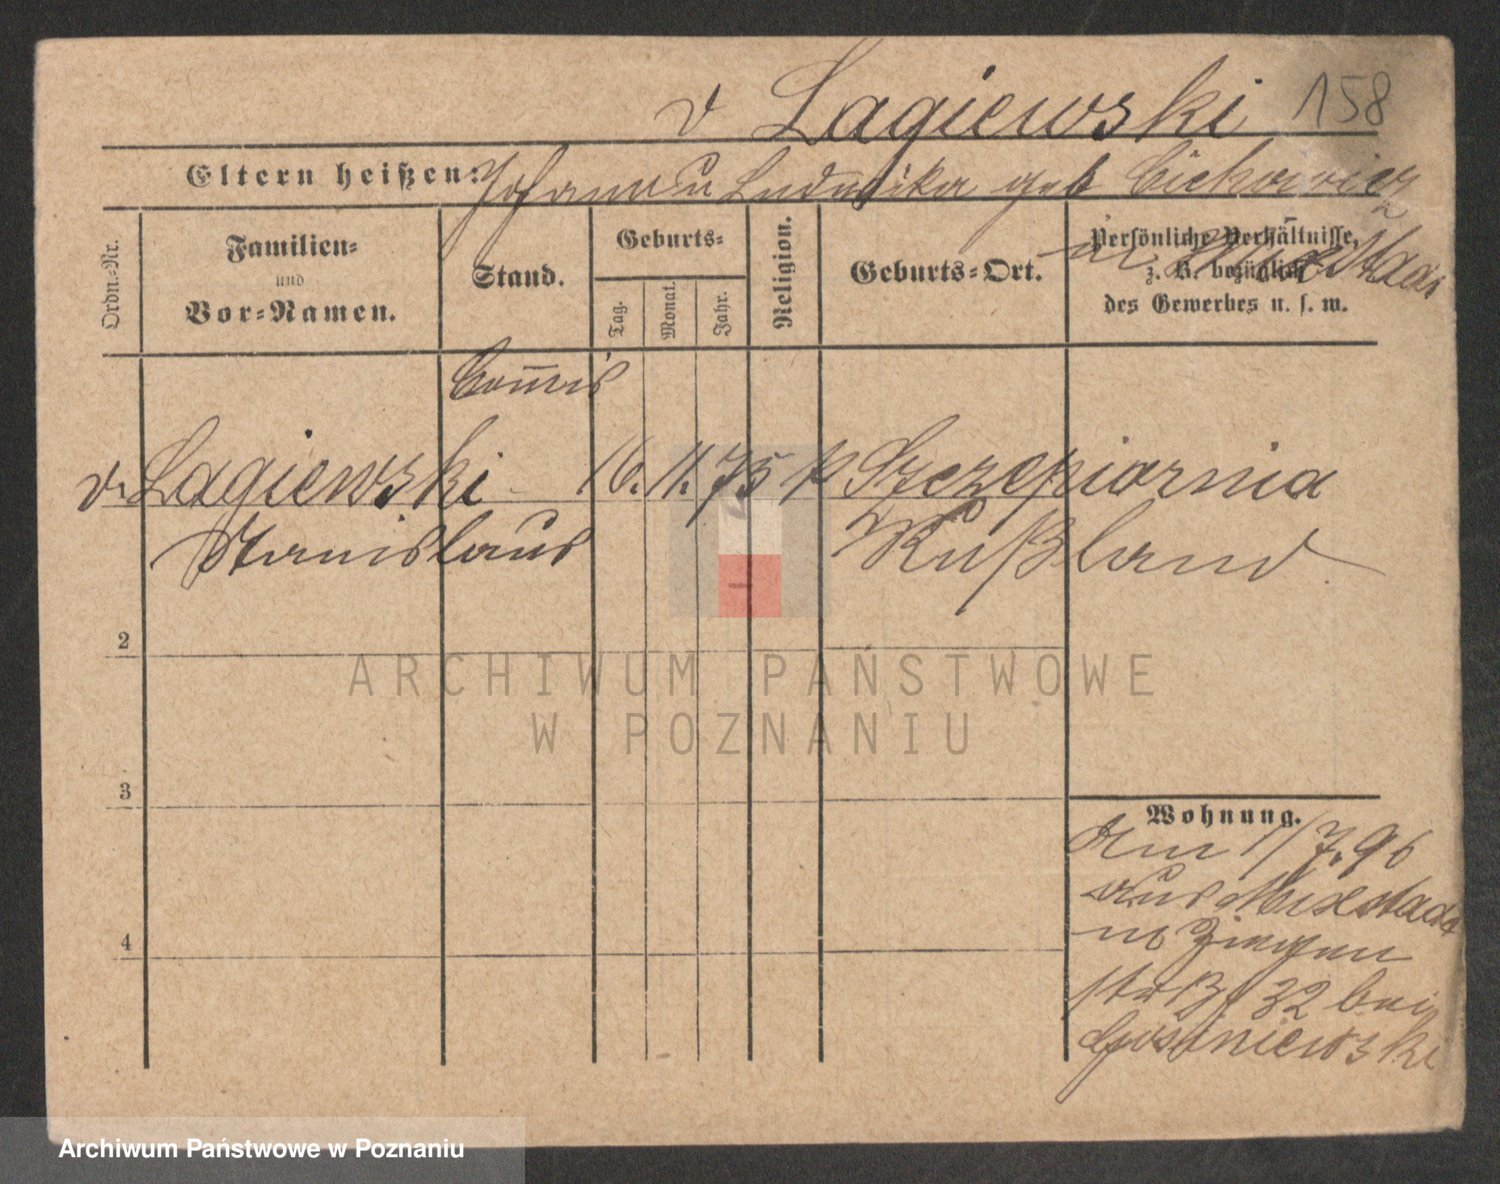 v Lagiewski 158
Eltern heißen: Johann u Ludwika geb Cichowicz
in Mixstadt
Ordn.-Nr.
Familien-
und
Vor-Namen.
Stand.
Geburts-
Tag.
Monat.
Jahr.
Religion.
Geburts-Ort.
Persönliche Verhältnisse,
z. B. bezüglich
des Gewerbes u. s. w.
Commis
v. Lagiewski 16. 11. 75 k Szczepiarnia
Stanislaus Rußland
2
3
4
Wohnung.
Am 1/7.96
aus Mixstadt
n. Ziegen
straß. 32 bei
ARCHIWUM PAŃSTWOWE
W POZNANIU
Archiwum Państwowe w Poznaniu